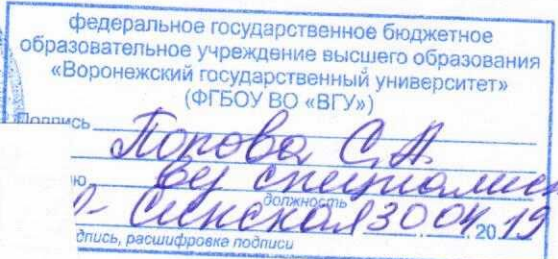 федеральное государственное бюджетное
образовательное учреждение высшего образования
«Воронежский государственный университет»
(ФГБОУ ВО «ВГУ»)
Подпись Попова С.А.
ю вед специалист
должность
30 04 2019
дпись, расшифровка подписи